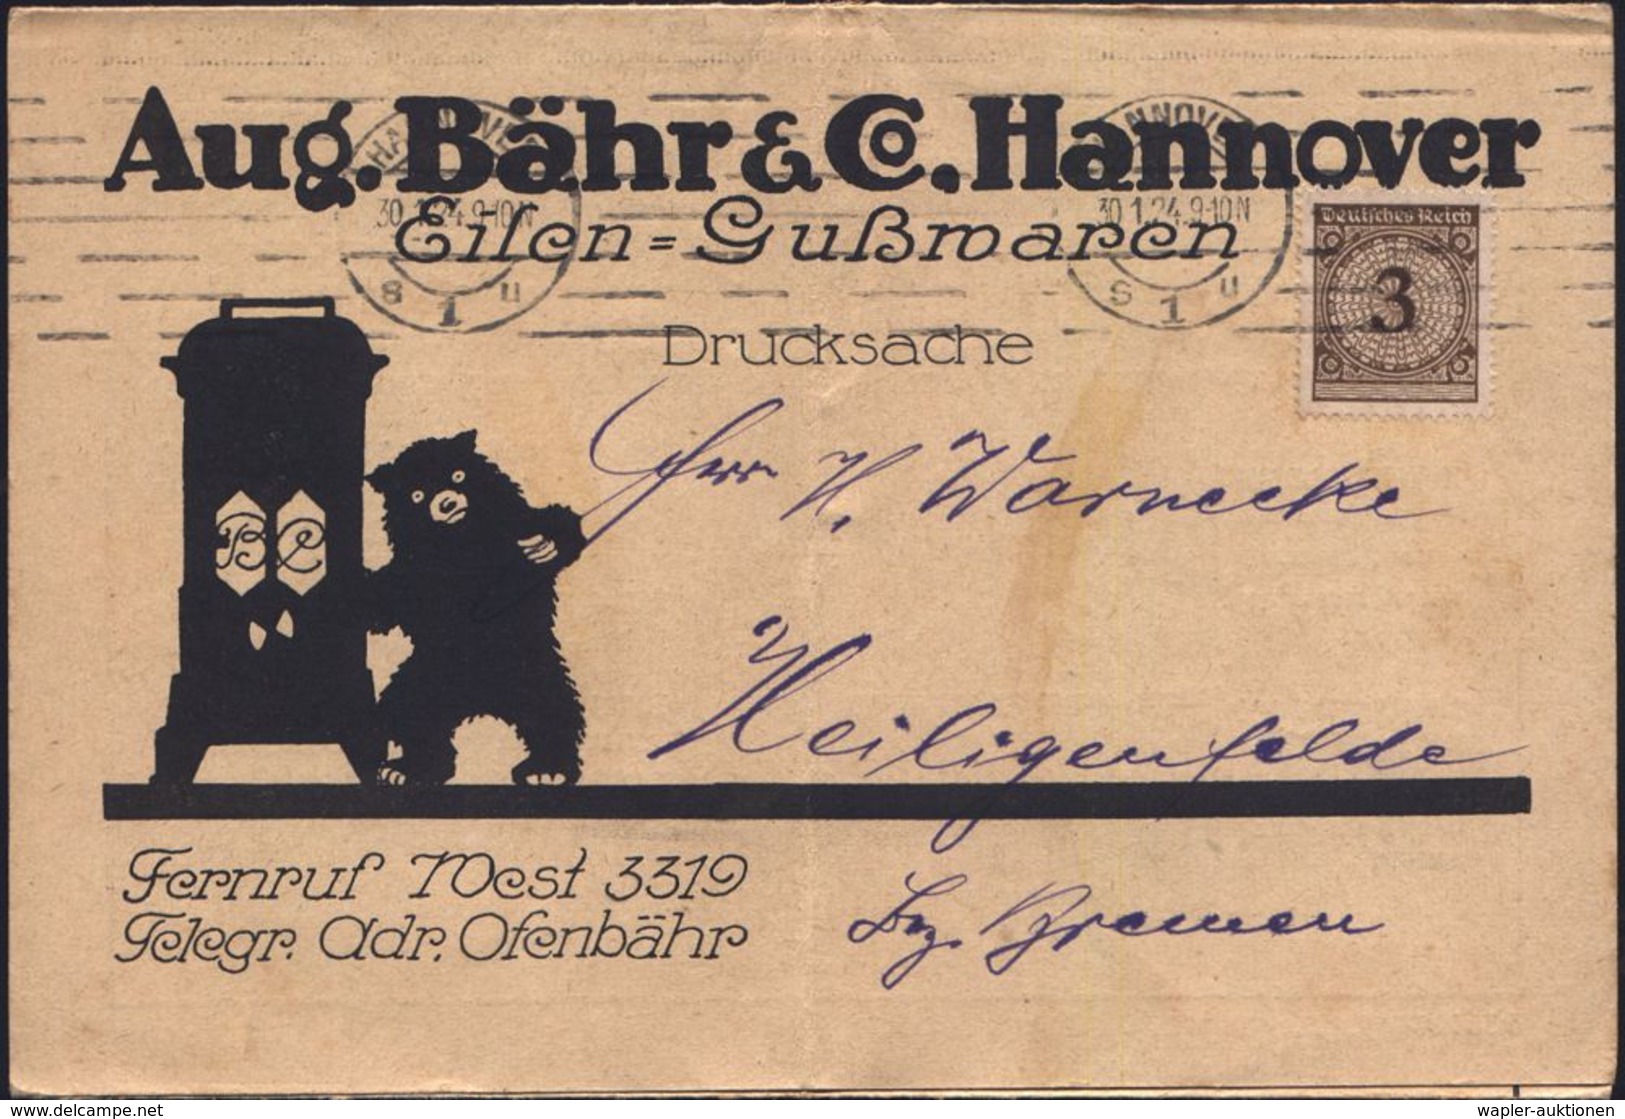 Aug. Bähr & Co. Hannover
HANNOVER
30.1.24.9-10N
s 1 u
HANNOVER
30.1.24.9-10N
s 1 u
Eisen=Gußwaren
Deutsches Reich
3
Drucksache
B C
Herr H. Warnecke
Heiligenfelde
Bz. Bremen
Fernruf West 3319
Telegr. Adr. Ofenbähr
www.delcampe.net
wapler-auktionen